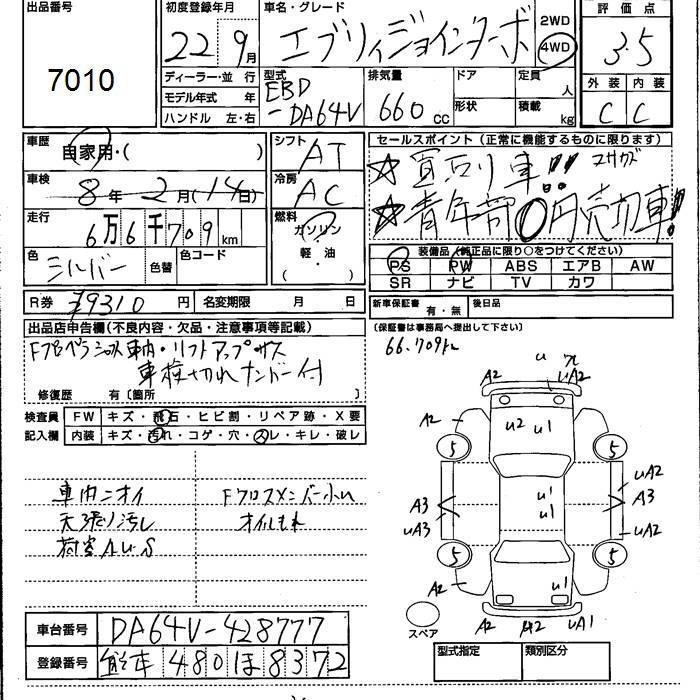 出品番号
7010
初度登録年月
22年 9月
車名・グレード
エブリィジョインターボ
2WD
4WD
評価点
3.5
ディーラー・並行
モデル年式 年
ハンドル 左・右
型式
EBD
-DA64V
排気量
660 cc
ドア
形状
定員 人
積載 kg
外装 内装
C C
車歴
自家用・( )
車検
8年 2月(14日)
走行
6万6千709km
色
シルバー
色替
色コード
シフト
AT
冷房
AC
燃料
ガソリン
軽油
( )
セールスポイント(正常に機能するものに限ります)
☆買取り車!!
装備品(純正品に限り○をつけてください)
PS PW ABS エアB AW
SR ナビ TV カワ
R券 ¥9310円
名変期限 月 日
新車保証書 有・無
後日品
(保証書は事務局へ提出して下さい)
出品店申告欄(不良内容・欠品・注意事項等記載)
車検切れナンバー付
修復歴 有〔箇所 〕
66.709km
検査員 FW キズ・飛石・ヒビ割・リペア跡・X要
記入欄 内装 キズ・汚れ・コゲ・穴・スレ・キレ・破レ
車内ニオイ
天張り汚レ
荷室AU.S
Fクロスメンバー小U
オイルもれ
U
A2 UA2
A2 A2
U2 U1
5 5
UA2
A3 U1 A3
UA3 U1 UA2
5 5
A2 U1 A2
A2 A2 UA1
スペア
車台番号 DA64V-428777
登録番号 熊本 480 ほ 8372
型式指定 類別区分